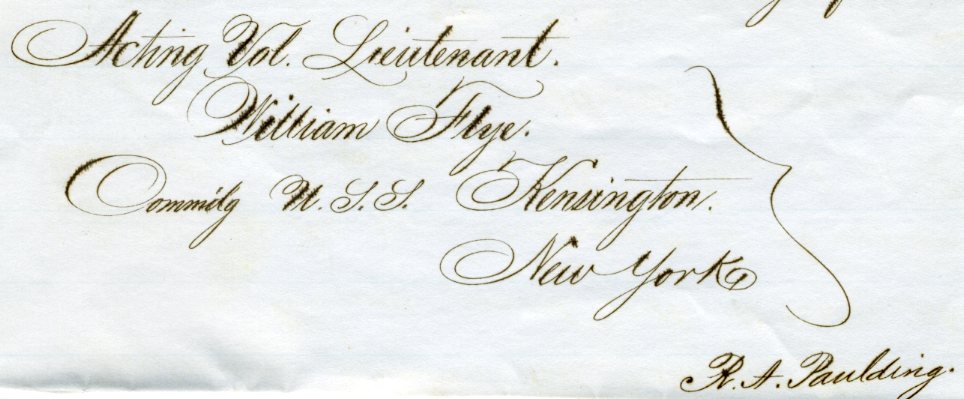 Acting Vol. Lieutenant.
William Flye.
Commd'g U.S.S. Kensington.
New York
R. A. Paulding.